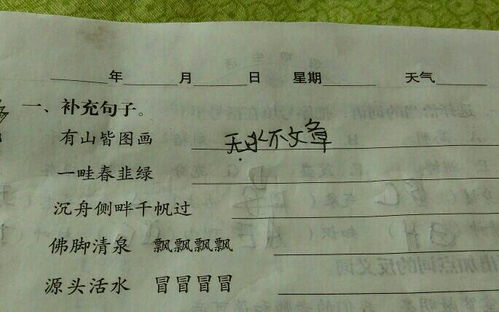 ____年____月____日 星期____ 天气____
一、补充句子。
有山皆图画 无水不文章
一畦春韭绿
沉舟侧畔千帆过
佛脚清泉 飘飘飘飘
源头活水 冒冒冒冒